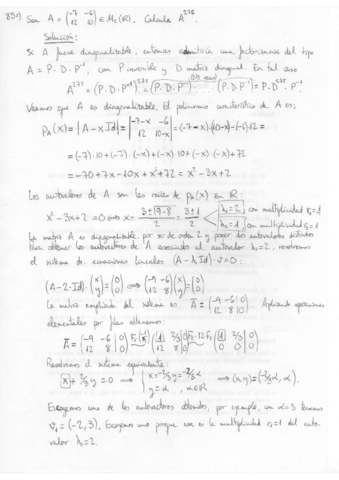 85º) Sea A = (-7 -6 / 12 10) ∈ M₂(ℝ). Calcula A²⁷⁵
Solución:
Si A fuese diagonalizable, entonces admitiría una factorización del tipo
A = P·D·P⁻¹, con P invertible y D matriz diagonal. En tal caso
A²⁷⁵ = (P·D·P⁻¹)²⁷⁵ = (P·D·P⁻¹) ... (P·D·P⁻¹) = P·D²⁷⁵·P⁻¹
Veamos que A es diagonalizable. El polinomio característico de A es:
p_A(x) = |A - x Id| = |-7-x -6 / 12 10-x| = (-7-x)·(10-x) - (-6)·12 =
= (-7)·10 + (-7)·(-x) + (-x)·10 + (-x)·(-x) + 72
= -70 + 7x - 10x + x² + 72 = x² - 3x + 2
Los autovalores de A son las raíces de p_A(x) en ℝ:
x² - 3x + 2 = 0 ⟺ x = (3 ± √9-8)/2 = (3 ± 1)/2 λ₁ = 2 con multiplicidad r₁ = 1
λ₂ = 1 con multiplicidad r₂ = 1
La matriz A es diagonalizable, por ser de orden 2 y poseer dos autovalores distintos
Para obtener los autovectores de A asociados al autovalor λ₁ = 2, resolvemos
el sistema de ecuaciones lineales (A - λ₁Id)·v = 0:
(A - 2·Id)·(x / y) = (0 / 0) ⟺ (-9 -6 / 12 8)·(x / y) = (0 / 0)
La matriz ampliada del sistema es Ā = (-9 -6 | 0 / 12 8 | 0). Aplicando operaciones
elementales por filas obtenemos:
Ā = (-9 -6 | 0 / 12 8 | 0) (1 2/3 | 0 / 12 8 | 0) F₂-12F₁ (1 2/3 | 0 / 0 0 | 0)
Resolvemos el sistema equivalente:
x + 2/3 y = 0 ⟺ { x = -2/3 y = -2/3 α / y = α, α ∈ ℝ ⟹ (x, y) = (-2/3 α, α).
Escogemos uno de los autovectores obtenidos, por ejemplo, con α = 3 tenemos
v₁ = (-2, 3). Escogemos uno porque uno es la multiplicidad r₁ = 1 del auto-
valor λ₁ = 2.